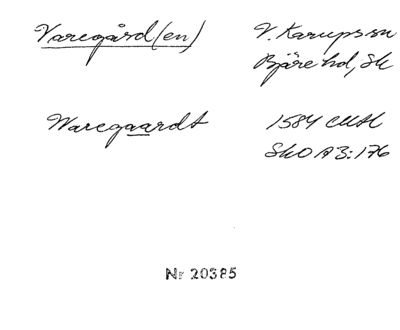 Varegård(en)
V. Karups sn
Bjäre hd, Sk
Waregaardt
1584
SkO A3:176
Nr 20385